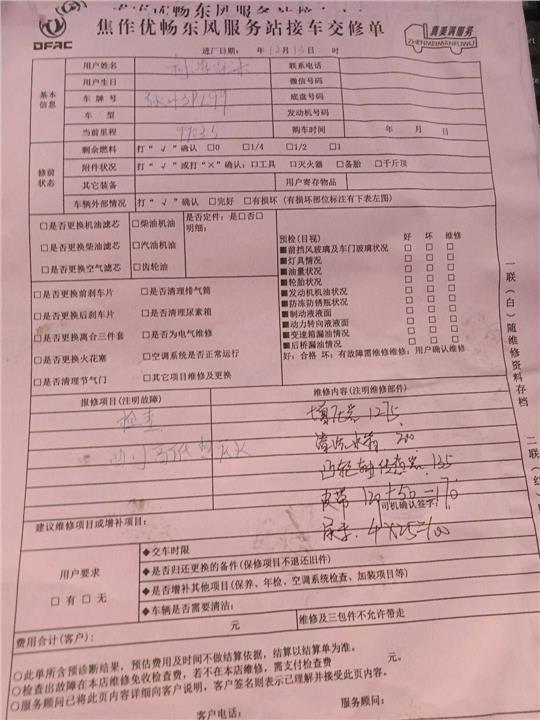 焦作优畅东风服务站接车交修单
DFAC
真美满服务
ZHENMEIMANFUWU
进厂日期: 年 12月13日 时
基本信息
用户姓名
联系电话
用户生日
微信号码
车牌号
底盘号码
车型
发动机号码
当前里程
购车时间 年 月 日
修前状态
剩余燃料 打“√”确认 □0 □1/4 □1/2 □1
附件状况 打“√”或打“×”确认:□工具 □灭火器 □备胎 □千斤顶
其它装备
用户寄存物品
车辆外部情况 打“√”确认 □完好 □有损坏(有损坏部位标注有下表左图)
□是否更换机油滤芯 □柴油机油 是否定件:是□否□
□是否更换柴油滤芯 □汽油机油 明细:
□是否更换空气滤芯 □齿轮油
□是否更换前刹车片 □是否清理排气筒
□是否更换后刹车片 □是否清理尿素箱
□是否更换离合三件套 □是否为电气维修
□是否更换火花塞 □空调系统是否正常运行
□是否清理节气门 □其它项目维修及更换
预检(目视) 好 坏 维修
■前挡风玻璃及车门玻璃状况 □ □ □
■灯具情况 □ □ □
■油量状况 □ □ □
■轮胎状况 □ □ □
■发动机机油状况 □ □ □
■防冻防锈瓶状况 □ □ □
■制动液液面 □ □ □
■动力转向液液面 □ □ □
■变速箱漏油情况 □ □ □
■后桥漏油情况 □ □ □
好:合格 坏:有故障需维修维修:用户确认维修
一联(白)随维修资料存档
二联(红)
报修项目(注明故障)
维修内容(注明维修部件)
检查
增压器 1275
清洗水箱 200
凸轮轴传感器 135
皮带 120+50=170
司机确认签字:
尿素: 4×25=100
建议维修项目或增补项目:
用户要求
□有 □无
◆交车时限
◆是否归还更换的备件(保修项目不退还旧件)
◆是否增补其他项目(保养、年检、空调系统检查、加装项目等)
◆车辆是否需要清洁:
费用合计(客户): 元
维修及三包件不允许带走
○此单所含预诊断结果,预估费用及时间不做结算依据,结算以结算单为准。
○检查出故障在本店维修免收检查费,若不在本店维修,需支付检查费 元。
○服务顾问已将此页内容详细向客户说明,客户签名则表示已理解并接受此页内容。
客户电话: 服务顾问: